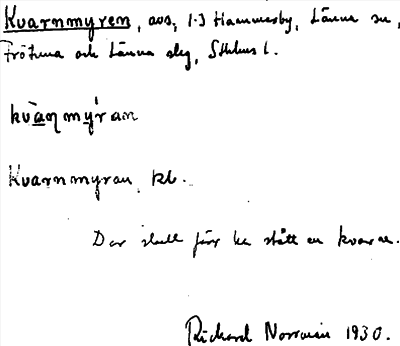 Kvarnmyren, avs, 1-3 Hammersby, Länna sn,
Frötuna och Länna skg, Sthlms l.
kvànmýran
Kvarnmyran, kb.
Där skall förr ha stått en kvarn.
Richard Norrman 1930.